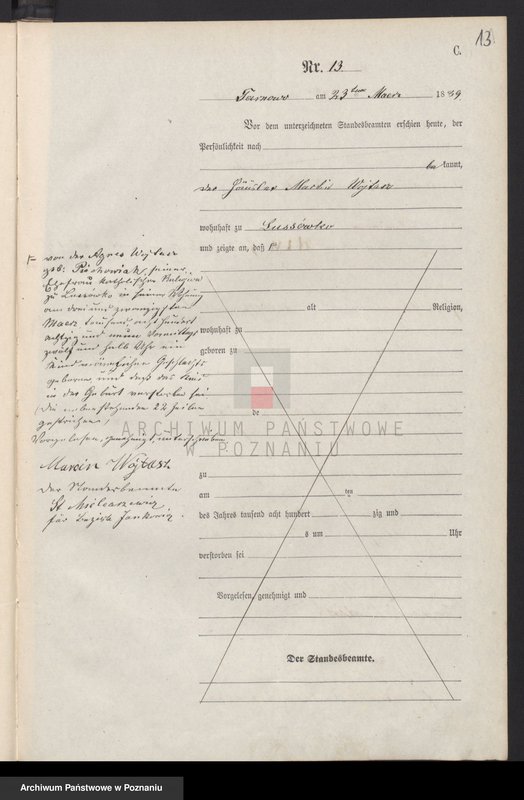 13
C.
Nr. 13
Tarnowo am 23ten Maerz 1889
Vor dem unterzeichneten Standesbeamten erschien heute, der
Persönlichkeit nach
be kannt,
der Häusler Martin Wojtasz
wohnhaft zu Lussówko
und zeigte an, daß
von der Agnes Wojtasz
geb: Piechowiak, seiner
Ehefrau katholischer Religion
zu Lussówko in seiner Wohnung
am drei und zwanzigsten
Maerz tausend acht hundert
achtzig und neun Vormittags
zwölf und halb Uhr ein
Kind männlichen Geschlechts
geboren und daß das Kind
in der Geburt verstorben sei
(Die nebenstehenden 22 Zeilen
gestrichen)
Vorgelesen, genehmigt, unterschrieben
Marcin Wojtasz
Der Standesbeamte
St Mielcarzewicz
für Bezirk
alt Religion,
wohnhaft zu
geboren zu
de
ARCHIWUM PAŃSTWOWE
W POZNANIU
zu
am ten
des Jahres tausend acht hundert zig und
s um Uhr
verstorben sei
Vorgelesen, genehmigt und
Der Standesbeamte.
Archiwum Państwowe w Poznaniu